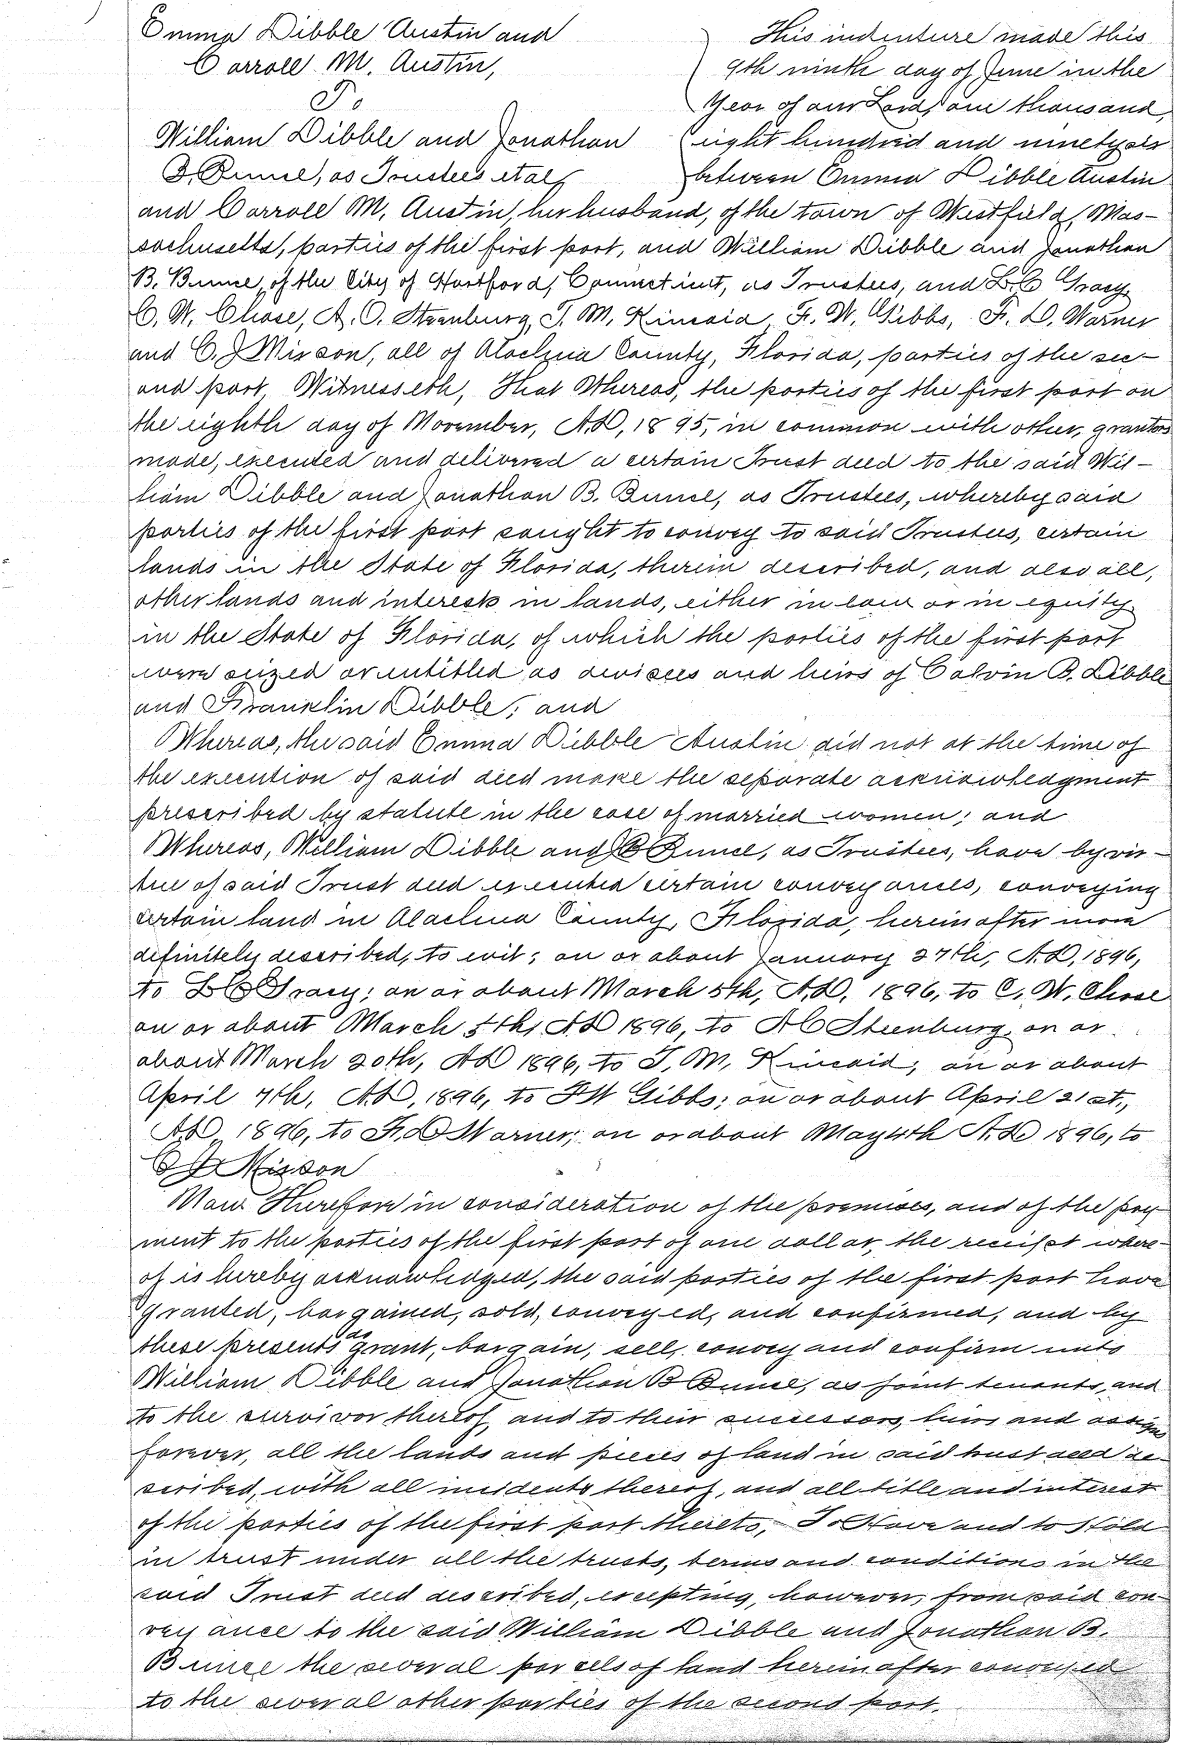 Emma Dibble Austin and
Carroll M. Austin,
To
William Dibble and Jonathan
B. Bunce, as Trustees et al
This indenture made this
9th ninth day of June in the
Year of our Lord, one thousand,
eight hundred and ninetysix
between Emma Dibble Austin
and Carroll M. Austin, her husband, of the town of Westfield, Mas-
sachusetts, parties of the first part, and William Dibble and Jonathan
B. Bunce, of the City of Hartford, Connecticut, as Trustees, and L.C. Gracy,
C. W. Chase, A. C. Steenburg, T. M. Kincaid, F. W. Gibbs, F. D. Warner
and C. J. Mixson, all of Alachua County, Florida, parties of the sec-
ond part, Witnesseth, That Whereas, the parties of the first part on
the eighth day of November, A.D. 1895, in common with other grantors
made, executed and delivered a certain Trust deed to the said Wil-
liam Dibble and Jonathan B. Bunce, as Trustees, whereby said
parties of the first part sought to convey to said Trustees, certain
lands in the State of Florida, therein described, and also all,
other lands and interests in lands, either in law or in equity
in the State of Florida, of which the parties of the first part
were seized or entitled as devisees and heirs of Calvin B. Dibble
and Franklin Dibble; and
Whereas, the said Emma Dibble Austin did not at the time of
the execution of said deed make the separate acknowledgment
prescribed by statute in the case of married women; and
Whereas, William Dibble and J B Bunce, as Trustees, have by vir-
tue of said Trust deed executed certain conveyances, conveying
certain land in Alachua County, Florida, hereinafter more
definitely described, to wit; on or about January 27th, A.D. 1896,
to L C Gracy; on or about March 5th, A.D. 1896, to C. W. Chase
on or about March 5th, A D 1896, to A C Steenburg, on or
about March 20th, A D 1896, to T. M. Kincaid; on or about
April 7th, A.D. 1896, to F W Gibbs; on or about April 21st.,
A.D. 1896, to F. D Warner; on or about May 4th A.D 1896, to
C J Mixson
Now Therefore in consideration of the premises, and of the pay-
ment to the parties of the first part of one dollar, the receipt where-
of is hereby acknowledged, the said parties of the first part have
granted, bargained, sold, conveyed, and confirmed, and by
these presents do grant, bargain, sell, convey and confirm unto
William Dibble and Jonathan B Bunce, as joint tenants, and
to the survivor thereof, and to their successors, heirs and assigns
forever, all the lands and pieces of land in said trust deed de-
scribed, with all incidents thereof, and all title and interest
of the parties of the first part thereto, To Have and to Hold
in trust under all the trusts, terms and conditions in the
said Trust deed described, excepting, however, from said con-
veyance to the said William Dibble and Jonathan B.
Bunce the several parcels of land hereinafter conveyed
to the several other parties of the second part.